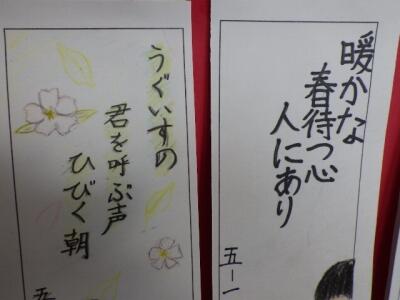 暖かな
春待つ心
人にあり
五－一
うぐいすの
君を呼ぶ声
ひびく朝
五